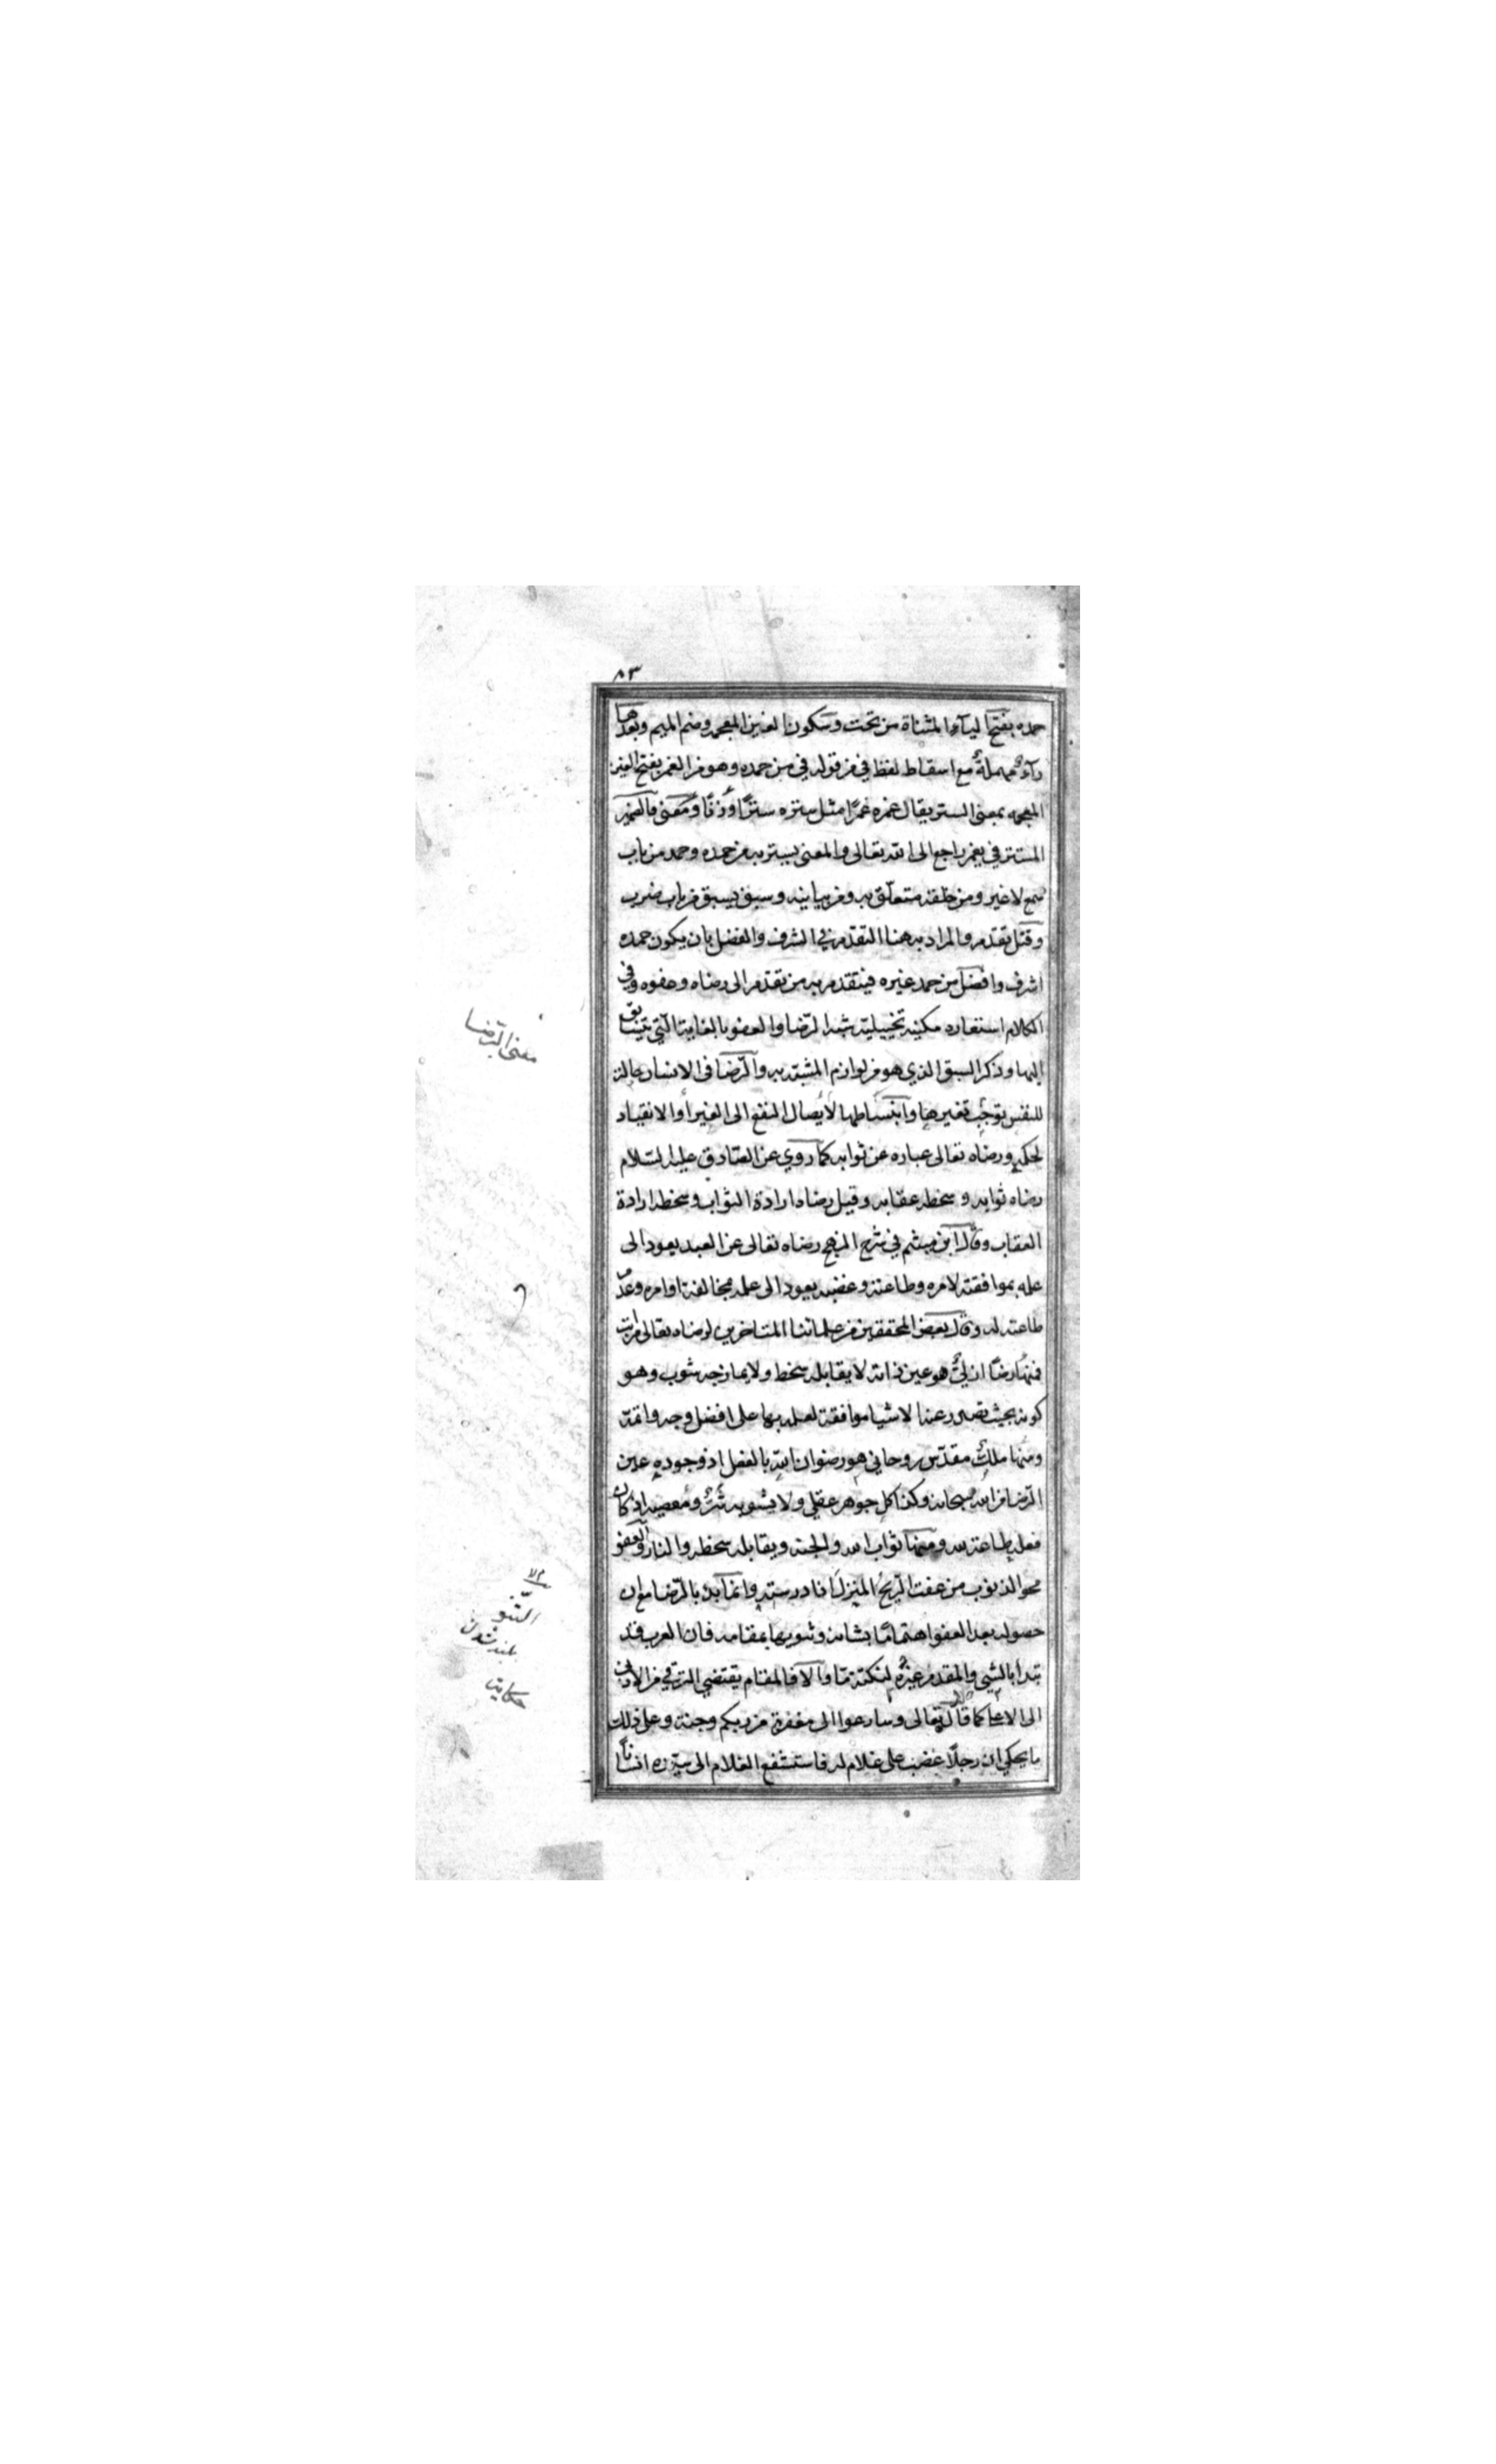 ٨٣
حمده بفتح الياء المثناة من تحت وسكون الغين المعجمه وضم الميم وبعدها
رآء مهملة مع اسقاط لفظ في من قوله في من حمده وهو من الغمر بفتح الغين
المعجمه بمعنى الستر يقال غمره غمرًا مثل ستره سترًا وزنًا ومعنى فالضمير
المستتر في يغمر راجع الى الله تعالى والمعنى يستر به من حمده وحمد من باب
سمع لا غير ومن خلقه متعلّق به ومن بيانيه وسبق يسبق من باب ضرب
وقتل تقدّم والمراد به هنا التقدّم في الشرف والفضل بان يكون حمده
اشرف وافضل من حمد غيره فيتقدم به من تقدّم الى رضاه وعفوه وفي
الكلام استعاره مكنيه تخييليّه شبه الرّضا والعفو بالغاية الّتي يتسابق
إليها وذكر السبق الذي هو من لوازم المشبّه به والرّضا في الانسان حالة
للنفس توجب تغيرها وانبساطها لأيصال النفع الى الغير أو الانقياد
لحكمه ورضاه تعالى عباره عن ثوابه كما روي عن الصّادق عليه السّلام
رضاه ثوابه وسخطه عقابه وقيل رضاه ارادة الثواب وسخطه ارادة
العقاب وقال ابن ميثم في شرح النهج رضاه تعالى عن العبد يعود الى
علمه بموافقته لامره وطاعته وغضبه يعود الى علمه بمخالفة اوامره وعدم
طاعته له وقال بعض المحققين من علمائنا المتاخرين لرضاه تعالى مراتب
فمنها رضًا ازليّ هو عين ذاته لا يقابله سخط ولا يمازجه شوب وهو
كونه بحيث تصدر عنه الاشيا موافقة لعلمه بها على افضل وجه واتمّه
ومنها ملك مقدّس روحاني هو رضوان الله بالفعل اذ وجوده عين
الرّضا من الله سبحانه وكذا كل جوهر عقلي ولا يشوبه شرّ ومعصيه اذ كان
فعله طاعة لله ومنها ثواب الله والجنه ويقابله سخطه والنار والعفو
محو الذنوب من عفت الرّيح المنزل اذا درسته وانما بدء بالرّضا مع ان
حصوله بعد العفو اهتمامًا بشانه وتنويها بمقامه فان العرب قد
تبدأ بالشي والمقدم غيره لنكتة مّا والا فالمقام يقتضي الترقي من الادنى
الى الاعلى كما قال تعالى وسارعوا الى مغفرة من ربكم وجنة وعلى ذلك
ما يحكي ان رجلًا غضب على غلام له فاستشفع الغلام الى سيّده انسانًا
معنى الرّضا
التنو
بلند شدن
حكايت